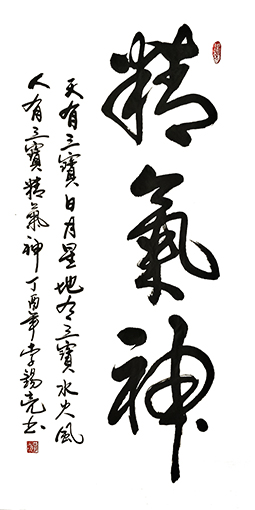 精氣神
天有三寶日月星地有三寶水火風
人有三寶精氣神丁酉年李錫書